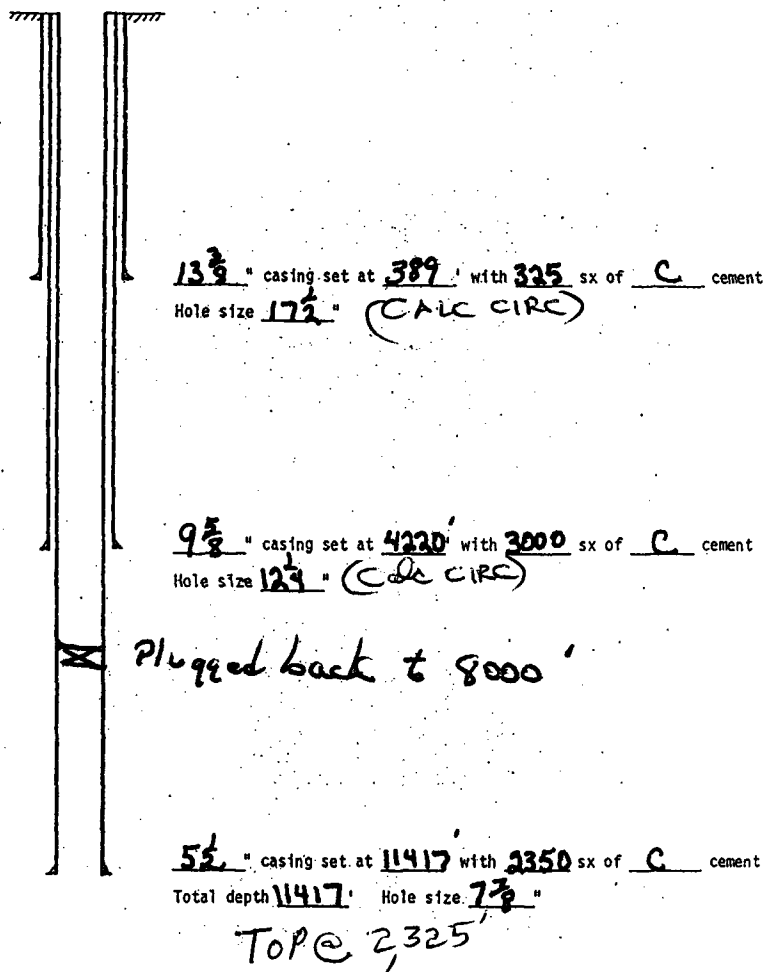 13 3/8 " casing set at 389 ' with 325 sx of C cement
Hole size 17 1/2 " (CALC CIRC)
9 5/8 " casing set at 4220' with 3000 sx of C cement
Hole size 12 1/4 " (Calc CIRC)
Plugged back to 8000'
5 1/2 " casing set at 11417' with 2350 sx of C cement
Total depth 11417' Hole size 7 7/8 "
TOP @ 2,325'